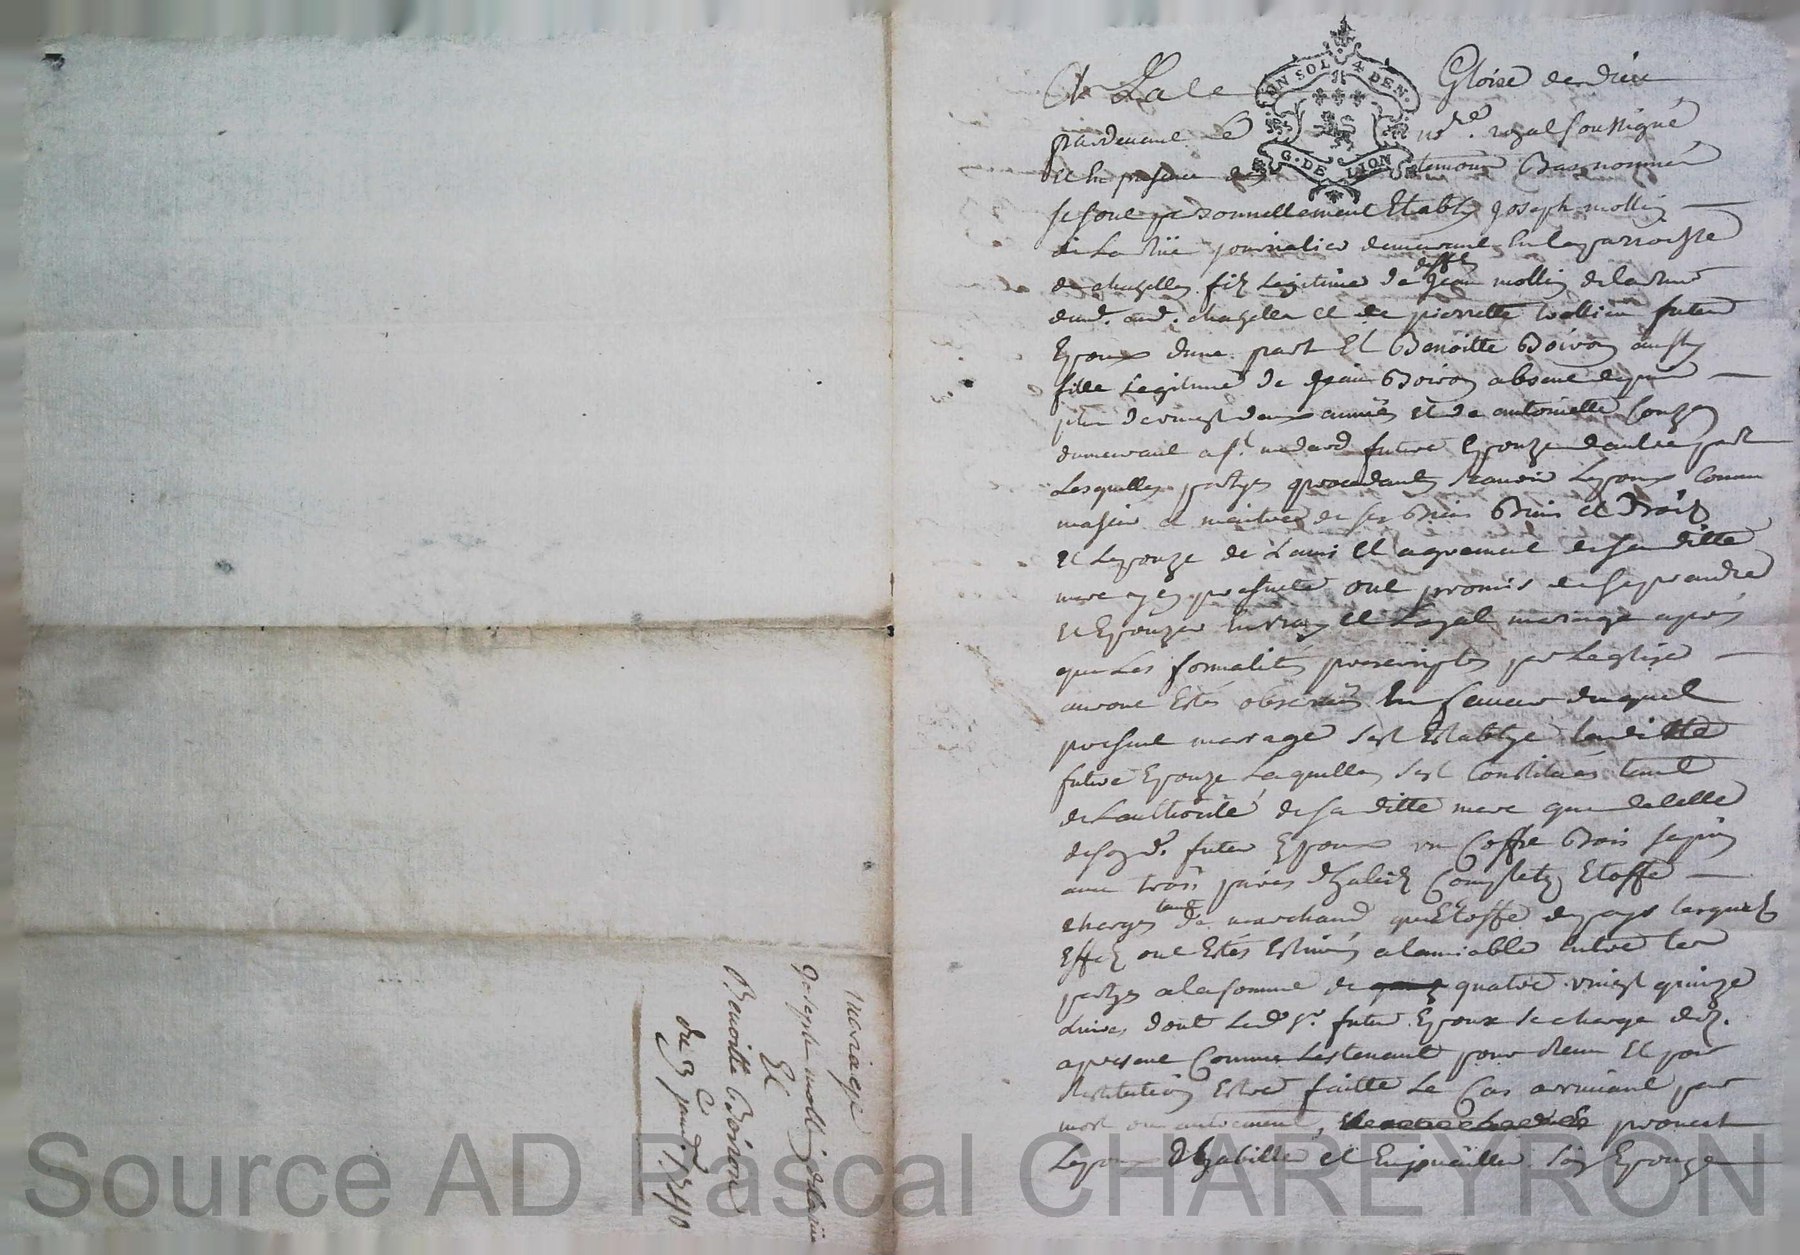 A La Gloire de dieu
pardevant le no.re royal soussigné
et en presence des temoins Bas nommés
se sont personnellement Etably Joseph mollin
de La Rüe journalier demeurant En la parroisse
de chazelles fils Legitime de deffunt Jean mollin de la rue
dud. chazelles et de pierrette future
Epoux d'une part Et Benoitte Boiron aussy
fille Legitime de Jean Boiron absent depuis
plus de vingt deux années et de antoinette
demeurant a St. medard future Epouze d'autre part
Lesquelles partyes procedants scavoir Lepoux Comme
majeur et maitre de ses Biens et Droits
et Lepouze de L'avis et agrement de sa ditte
mere icy presente ont promis de se prendre
et Epouzer En vray et Loyal mariage apres
que Les formalités prescriptes par Leglise
auront Estés observées En faveur duquel
present mariage s'est Establye laditte
future Epouze Laquelle s'est Constituée tant
de Lauthorité de sa ditte mere que de celle
de son d. futur Epoux un Coffre Bois sapin
avec trois paires d'habits Complets Etoffe
tant de marchand que Etoffe du pays lesquels
Effets ont Estés Estimés a lamiable Entre les
partyes a la somme de quatre vingt quinze
Livres dont Led. Sr. futur Epoux se charge des
a present Comme Les tenant pour Remis Et pour
Restitution Estre faitte Le Cas arrivant par
mort ou autrement, promet
Lepoux d'habiller et Enjoüeller son Epouze
UN SOL 4 DEN.
G. DE LION
mariage
Joseph mollin delarüe
Et
Benoitte Boiron
Source AD Pascal CHAREYRON